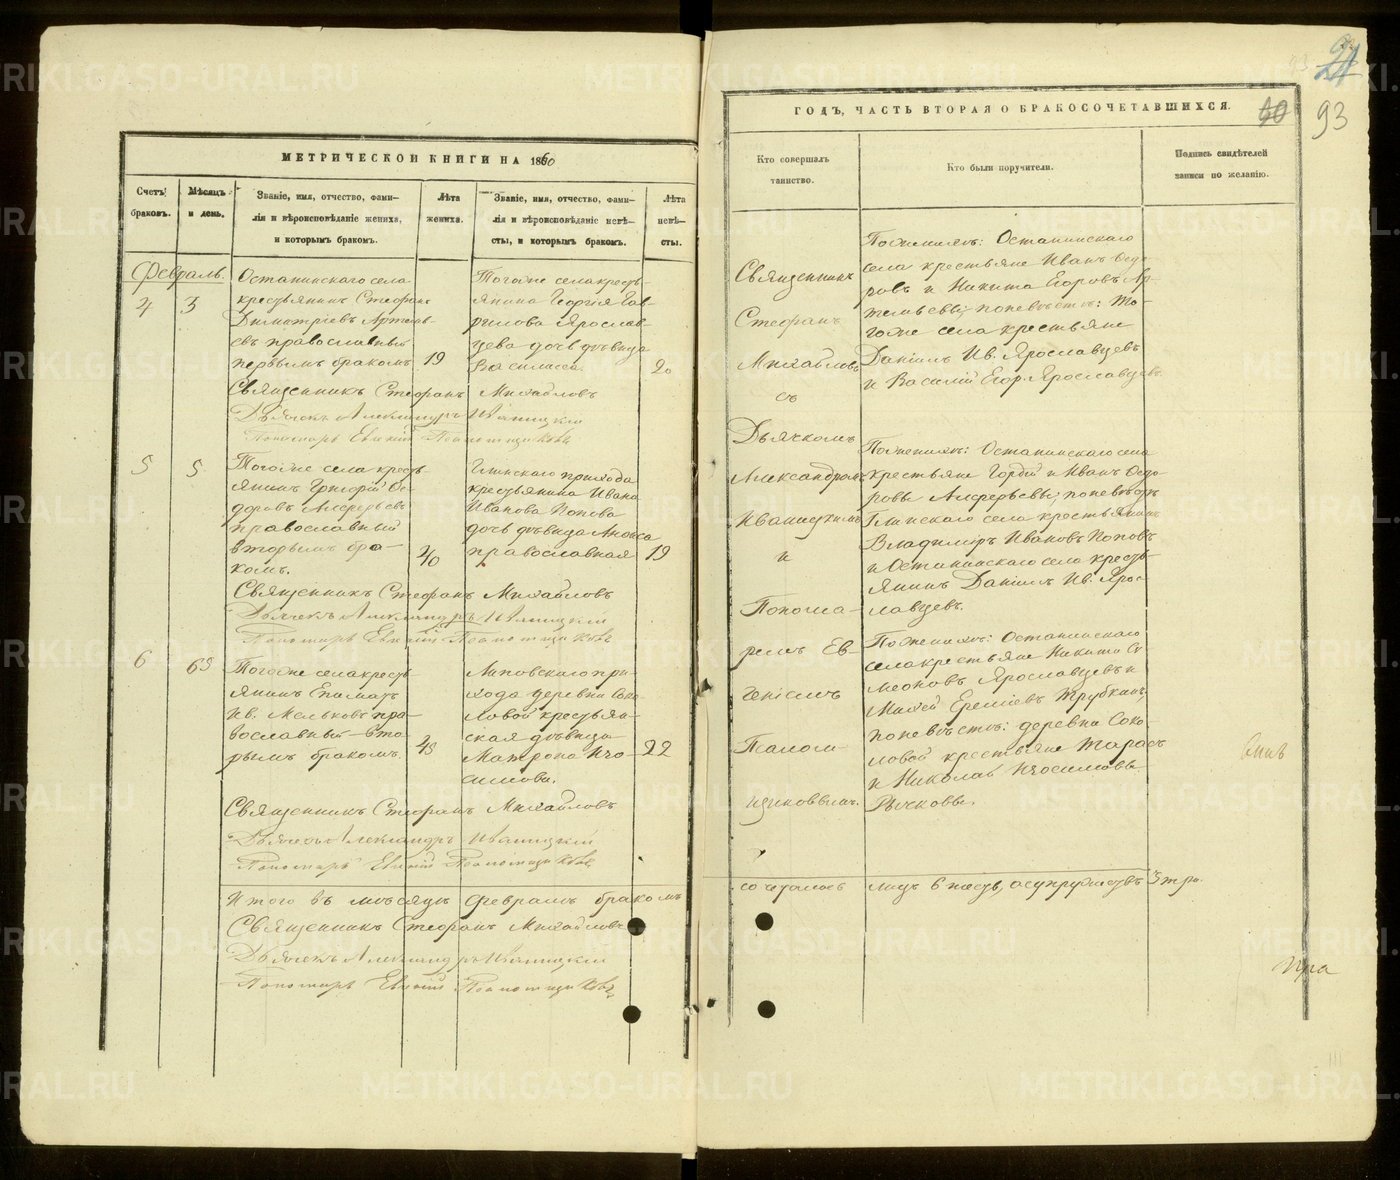 МЕТРИЧЕСКОЙ КНИГИ НА 1860
Счетъ браковъ.
Мѣсяцъ и день.
Званіе, имя, отчество, фами-
лія и вѣроисповѣданіе жениха,
и которымъ бракомъ.
Лѣта
жениха.
Званіе, имя, отчество, фами-
лія и вѣроисповѣданіе невѣ-
сты, и которымъ бракомъ.
Лѣта
невѣ-
сты.
Февраль.
4
3
Останинскаго села
крестьянинъ Стефанъ
Димитріевъ Артемь-
евъ православный
первымъ бракомъ
19
Тогоже села кресть-
янина Георгія Гав-
рилова Ярослав-
цева дочь дѣвица
Василисса.
20
Священникъ Стефанъ Михайловъ
Дьячекъ Александръ Иваницкій
Пономарь Евгеній Псаломщиковъ
5
5
Тогоже села кресть-
янинъ Григорій Ѳе-
доровъ Алферьевъ
православный
вторымъ бра-
комъ.
40
Глинскаго прихода
крестьянина Ивана
Иванова Попова
дочь дѣвица Анисья
православная
19
Священникъ Стефанъ Михайловъ
Дьячекъ Александръ Иваницкій
Пономарь Евгеній Псаломщиковъ
6
Тогоже села кресть-
янинъ
Ив. Мельковъ пра-
вославный вто-
рымъ бракомъ.
Липовскаго при-
хода деревни Соко-
ловой крестьян-
ская дѣвица
Матрона Изо-
симова.
22
Священникъ Стефанъ Михайловъ
Дьячекъ Александръ Иваницкій
Пономарь Евгеній Псаломщиковъ
Итого въ мѣсяцѣ Февралѣ бракомъ
Священникъ Стефанъ Михайловъ
Дьячекъ Александръ Иваницкій
Пономарь Евгеній Псаломщиковъ
21
40
93
ГОДЪ, ЧАСТЬ ВТОРАЯ О БРАКОСОЧЕТАВШИХСЯ.
Кто совершалъ
таинство.
Кто были поручители.
Подпись свидѣтелей
записи по желанію.
Священникъ
Стефанъ
Михайловъ
съ
Дьячкомъ
Александромъ
Иваницкимъ
и
Понома-
ремъ Ев-
геніемъ
Псалом-
щиковымъ.
По женихѣ: Останинскаго
села крестьяне Иванъ Ѳедо-
ровъ и Никита Егоровъ Ар-
темьевы; по невѣстѣ: То-
гоже села крестьяне
Даніилъ Ив. Ярославцевъ
и Василій Егор. Ярославцевъ.
По женихѣ: Останинскаго села
крестьяне Гордій и Иванъ Ѳедо-
ровы Алферьевы; по невѣстѣ
Глинскаго села крестьянинъ
Владиміръ Ивановъ Поповъ
и Останинскаго села кресть-
янинъ Даніилъ Ив. Ярос-
лавцевъ.
По женихѣ: Останинскаго
села крестьяне Никита Си-
меоновъ Ярославцевъ и
по невѣстѣ: деревни Соко-
ловой крестьяне Тарасъ
и Николай Изосимовы
Рычковы.
сочеталось
лицъ 6 шесть, а супружествъ 3 три.
METRIKI.GASO-URAL.RU